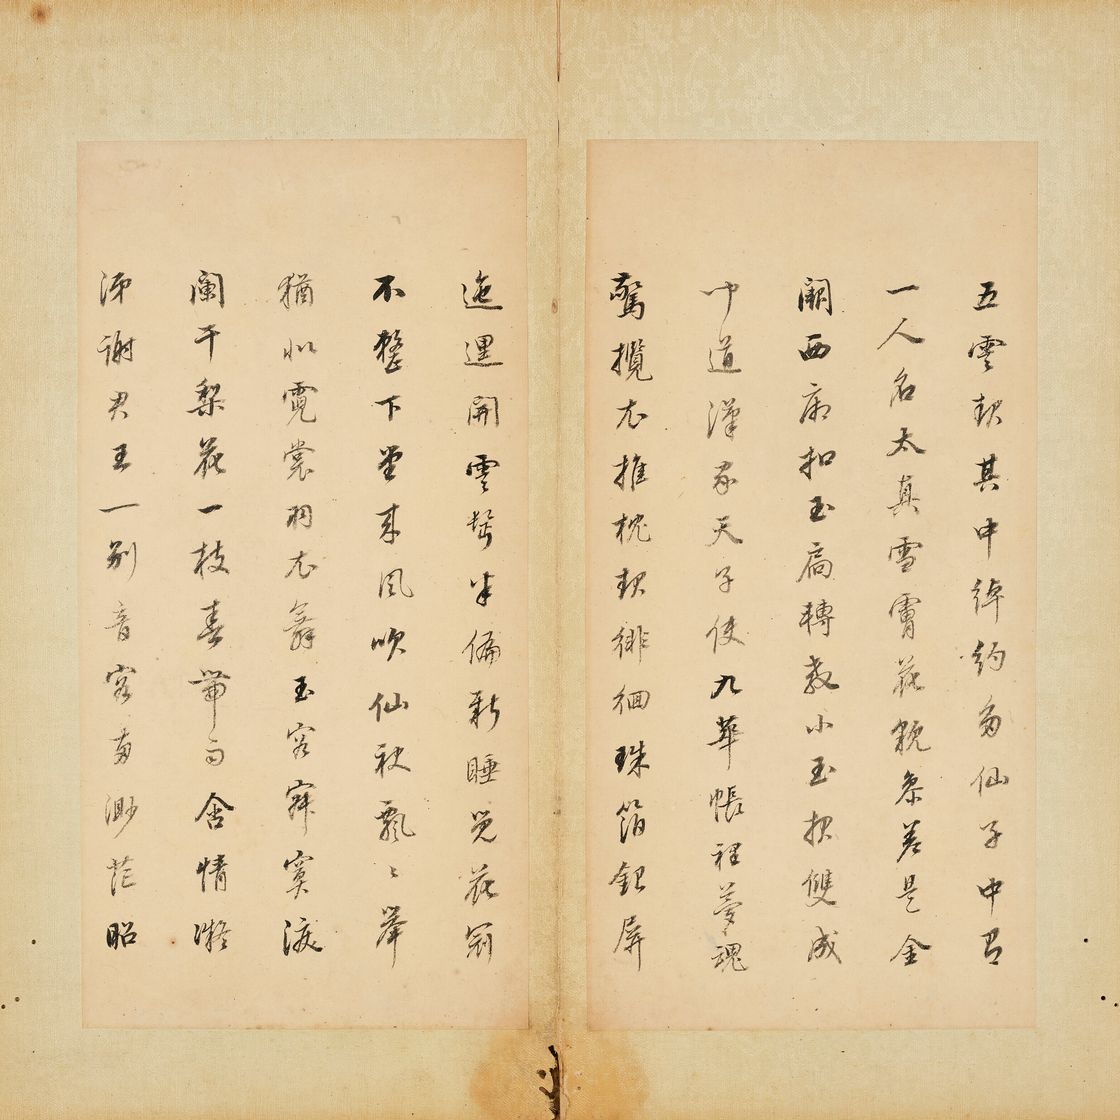 五雲起其中綽約多仙子中有
一人名太真雪膚花貌參差是金
闕西廂扣玉扃轉教小玉報雙成
聞道漢家天子使九華帳裡夢魂
驚攬衣推枕起徘徊珠箔銀屏
迤邐開雲鬢半偏新睡覺花冠
不整下堂來風吹仙袂飄〻舉
猶似霓裳羽衣舞玉容寂寞淚
闌干梨花一枝春帶雨含情凝
涕謝君王一別音容兩渺茫昭